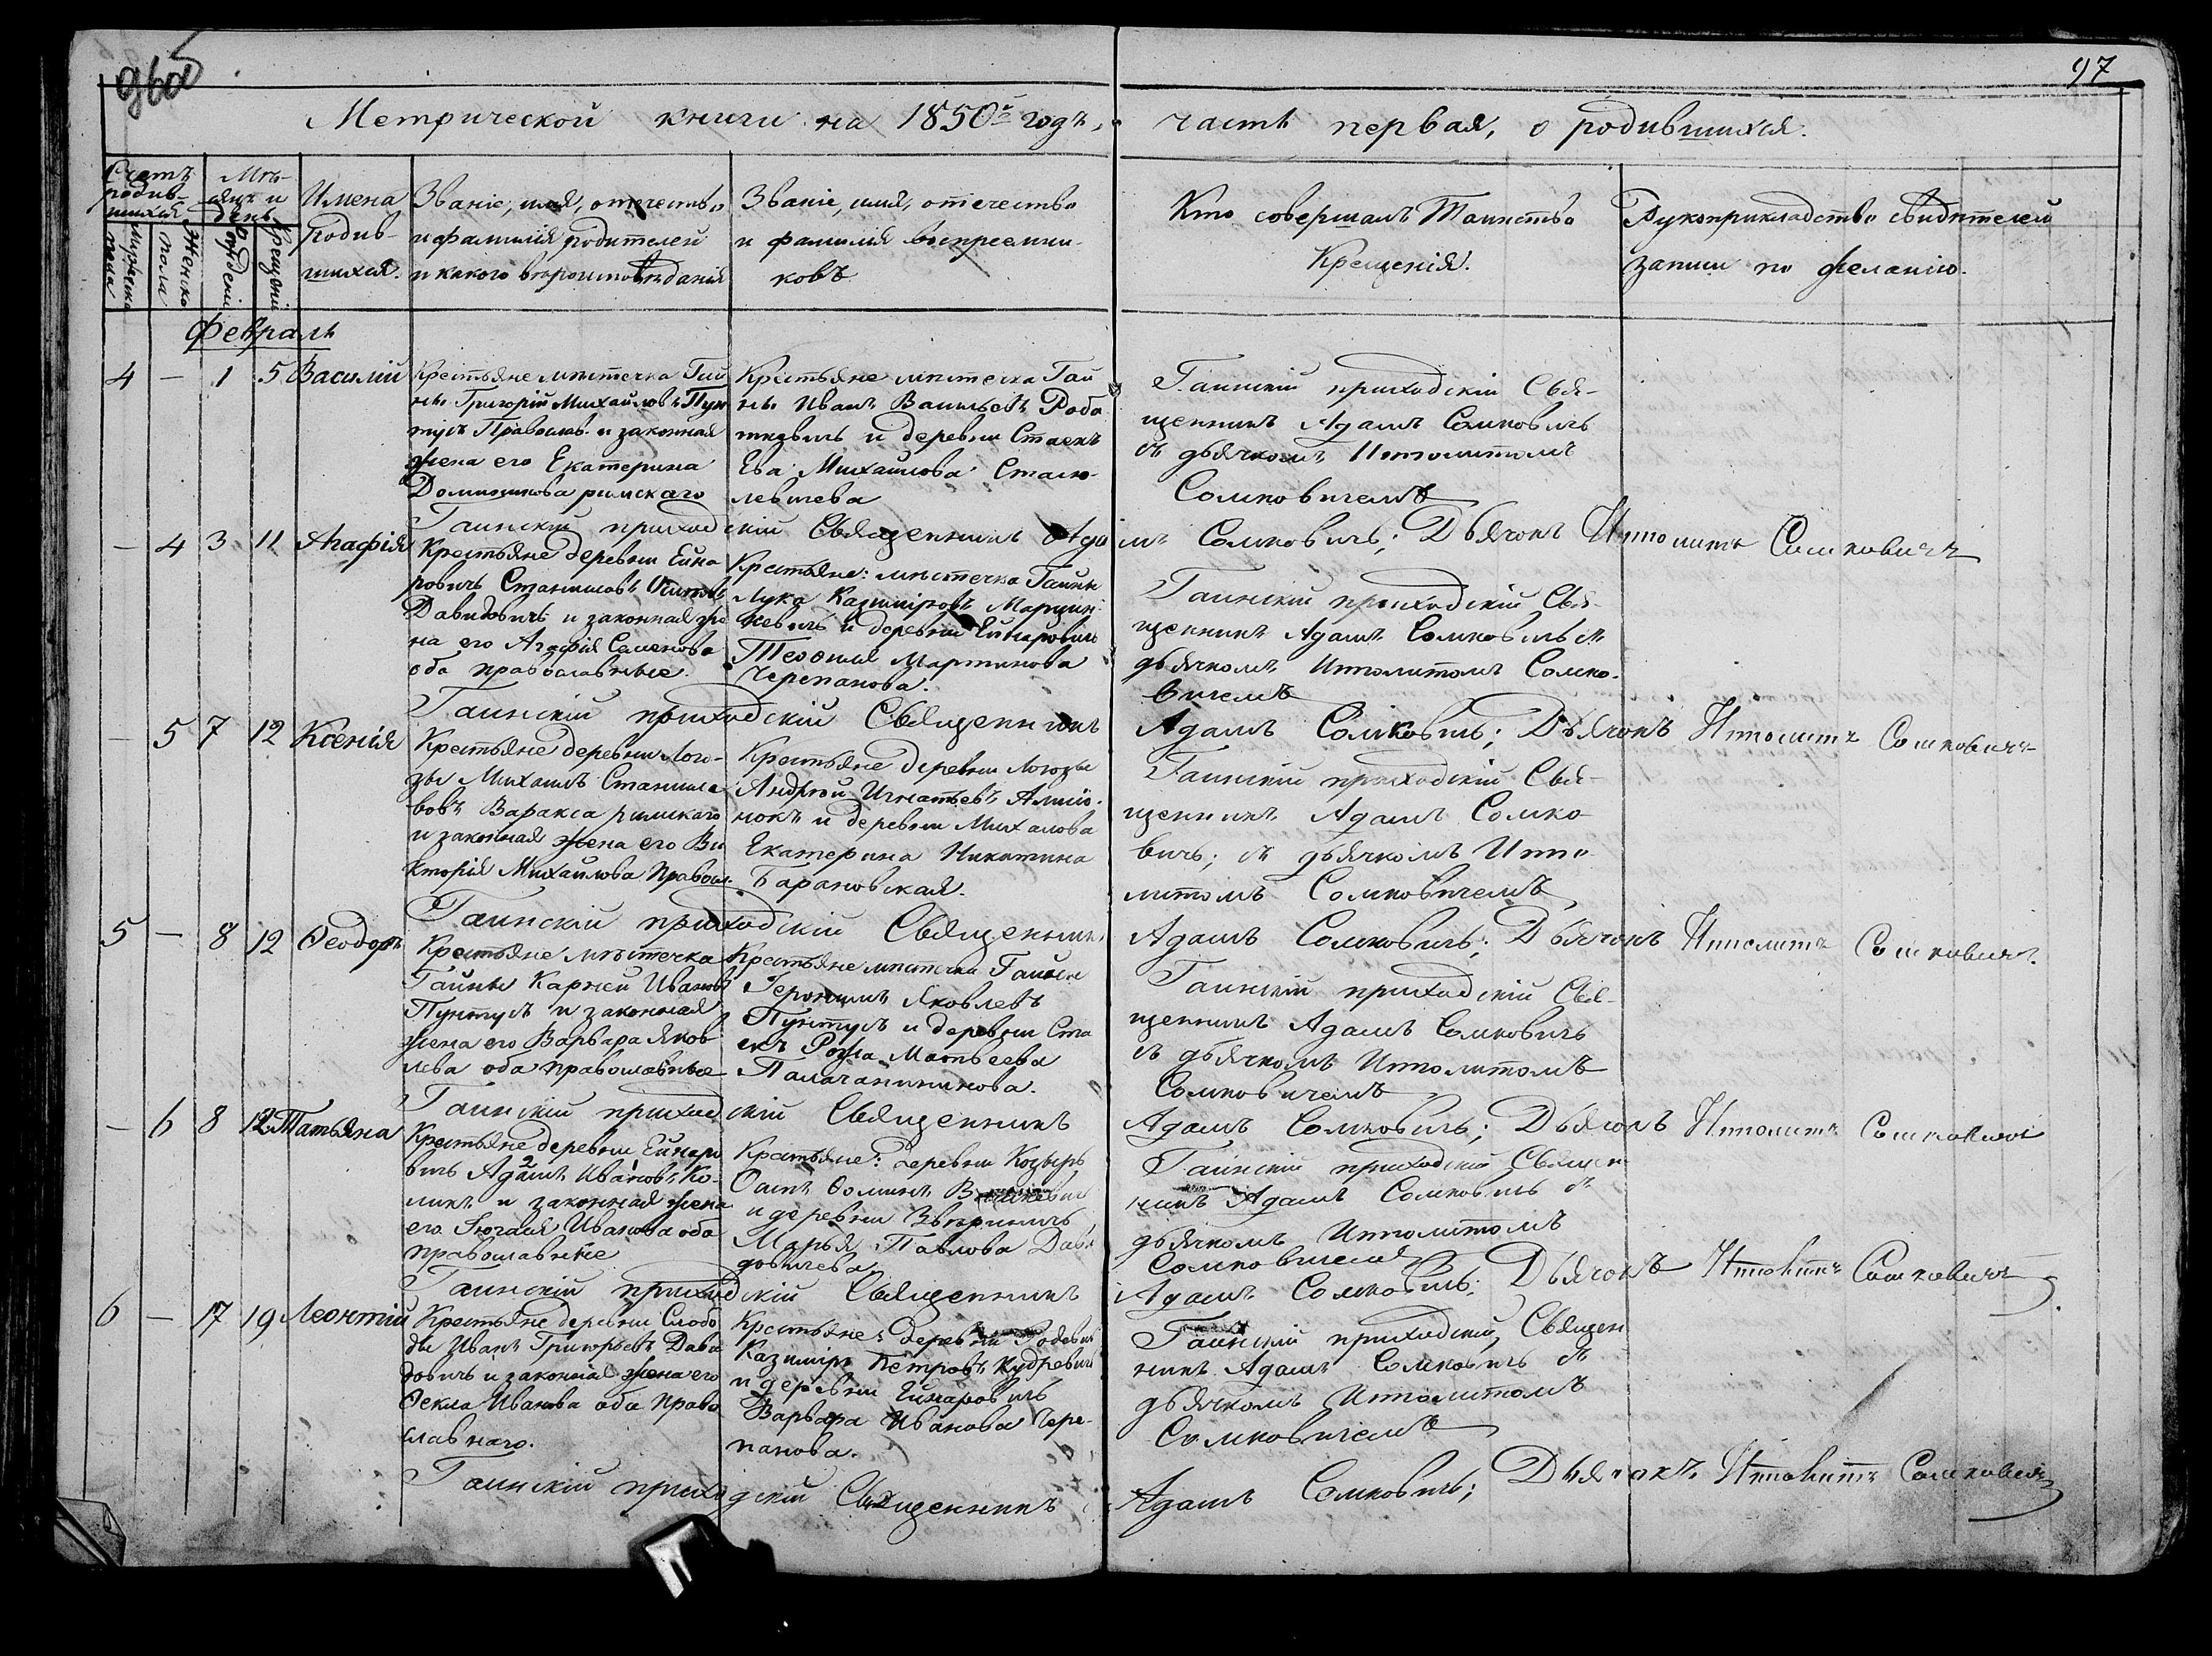 96об
97
Метрической книги на 1850й годъ,
часть первая, о родившихся.
Счетъ родив-шихся
Мужеска пола
Женска пола
Мѣ-сяцъ и день
рожденія
крещенія
Имена
Родив-
шихся.
Званіе, имя, отечество
и фамилія родителей
и какого вѣроисповѣданія
Званіе, имя, отечество
и фамилія воспреемни-
ковъ
Кто совершалъ Таинство
Крещенія.
Рукоприкладство свидѣтелей
записи по желанію.
Февраль
4 — 1 5 Василій
Крестьяне мѣстечка Гай
ны Григорій Михайловъ Пун
тусъ Православ. и законная
жена его Екатерина
Доминикова римскаго
Крестьяне мѣстечка Гай
ны Иванъ Васильевъ
и деревни Стаекъ
Ева Михайлова Стасю-
левичева
Гаинскій приходскій Свя-
щенникъ Адамъ Сомковичъ
съ дьячкомъ Ипполитомъ
Сомковичемъ
Гаинскій приходскій Священникъ Адамъ Сомковичъ; Дьячокъ Ипполитъ Сомковичъ
— 4 3 11 Агафія
Крестьяне деревни Ейна
ровичъ Станиславъ Осиповъ
Давидовичъ и законная же
на его Агафія Семенова
оба православные.
Крестьяне: мѣстечка Гайны
Лука Казиміровъ Марцин
кевичъ и деревни Ейнаровичъ
Мартинова
Черепанова.
Гаинскій приходскій Свя-
щенникъ Адамъ Сомковичъ съ
дьячкомъ Ипполитомъ Сомко-
вичемъ
Гаинскій приходскій Священникъ Адамъ Сомковичъ; Дьячокъ Ипполитъ Сомковичъ
— 5 7 12 Ксенія
Крестьяне деревни Лого-
зы Михаилъ Станисла
вовъ Варакса римскаго
и законная жена его Ви
кторія Михайлова Правосл.
Крестьяне деревни Логозы
Андрей Игнатьевъ
и деревни Михалова
Екатерина Никитина
Барановская.
Гаинскій приходскій Свя-
щенникъ Адамъ Сомко
вичъ; съ дьячкомъ Иппо
литомъ Сомковичемъ
Гаинскій приходскій Священникъ Адамъ Сомковичъ; Дьячокъ Ипполитъ Сомковичъ
5 — 8 12 Ѳеодоръ
Крестьяне мѣстечка
Гайны Карней Ивановъ
Пунтусъ и законная
жена его Варвара Яков
лева оба православные
Крестьяне мѣстечка Гайны
Геронимъ Яковлевъ
Пунтусъ и деревни Ста
екъ Розга Матвеева
Гаинскій приходскій Свя-
щенникъ Адамъ Сомковичъ
съ дьячкомъ Ипполитомъ
Сомковичемъ
Гаинскій приходскій Священникъ Адамъ Сомковичъ; Дьячокъ Ипполитъ Сомковичъ
— 6 8 12 Татьяна
Крестьяне деревни Ейнаро
вичъ Адамъ Ивановъ Ко-
ликъ и законная жена
его Иванова оба
православные
Крестьяне: деревни Козырь
Осипъ Ѳоминъ
и деревни
Марья Павлова Дави
довичева
Гаинскій приходскій Священ
никъ Адамъ Сомковичъ съ
дьячкомъ Ипполитомъ
Сомковичемъ
Гаинскій приходскій Священникъ Адамъ Сомковичъ; Дьячокъ Ипполитъ Сомковичъ
6 — 17 19 Леонтій
Крестьяне деревни Слобо
ды Иванъ Григорьевъ Дави
довичъ и законная жена его
Ѳекла Иванова оба Право
славнаго.
Крестьяне: деревни
Казиміръ Петровъ Кудревичъ
и деревни Ейнаровичъ
Варвара Иванова Чере-
панова.
Гаинскій приходскій Священ
никъ Адамъ Сомковичъ съ
дьячкомъ Ипполитомъ
Сомковичемъ
Гаинскій приходскій Священникъ Адамъ Сомковичъ; Дьячокъ Ипполитъ Сомковичъ